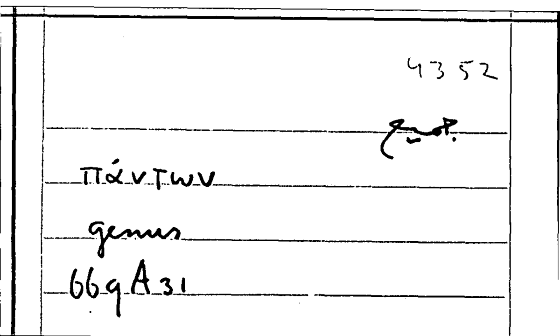 4352
πάντων
genus
669A31